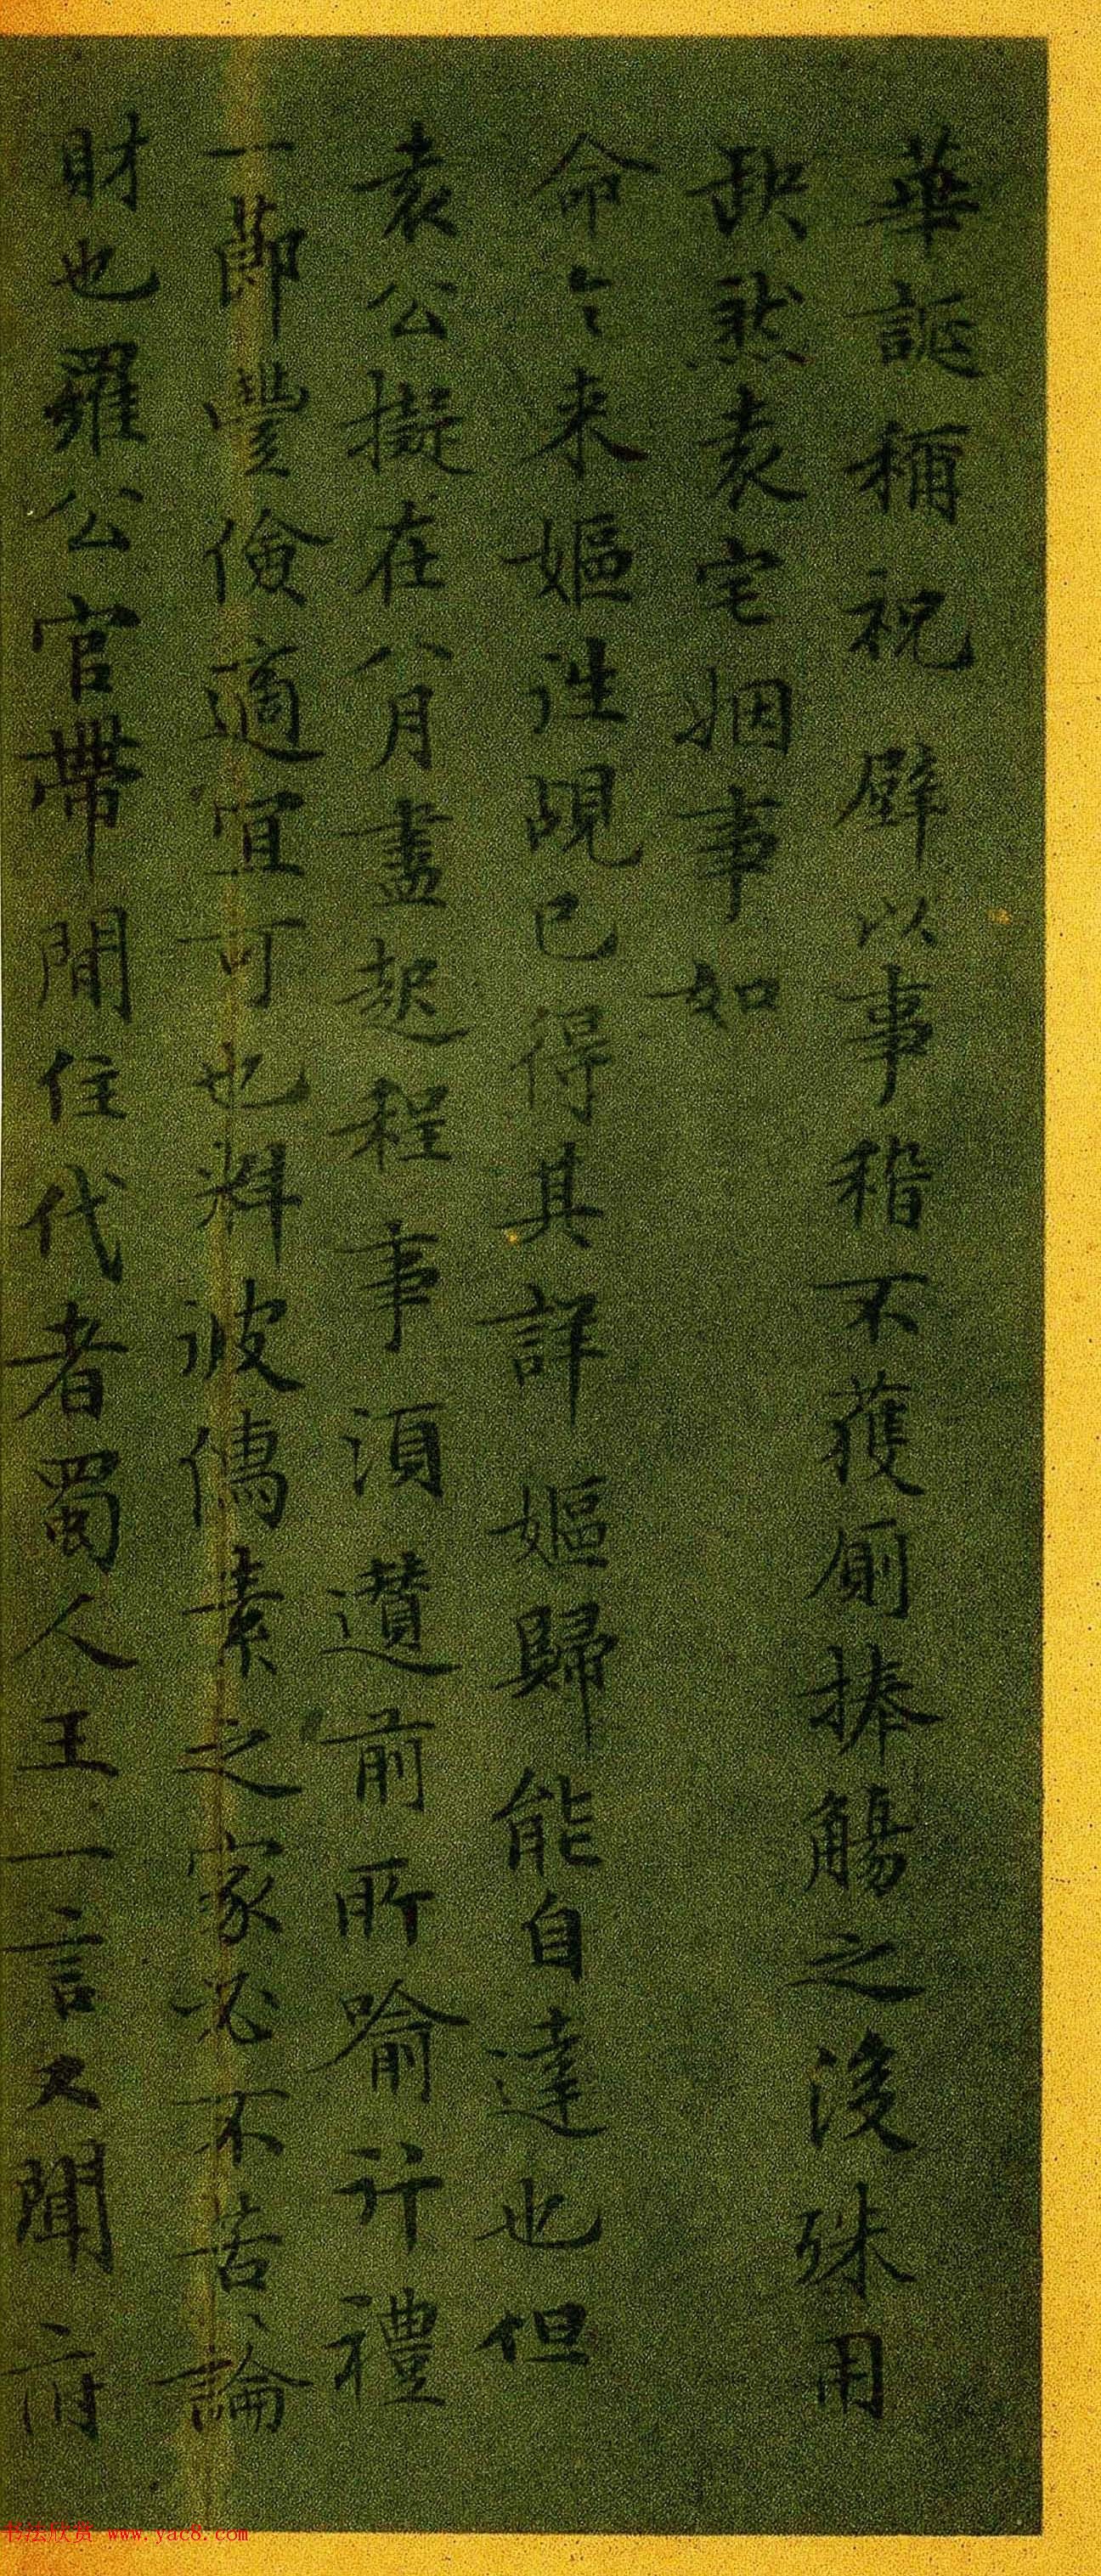 華誕稱祝壁以事稽不獲廁捧觴之後殊用
缺然袁宅姻事如
命令来嫗往覘已得其詳嫗歸能自達也但
袁公擬在八月盡起程事須遣前所喻行禮
一節豐儉適宜可也料彼儒素之家必不苦論
財也羅公官帶閒住代者蜀人王一言又聞有
书法欣赏 www.yac8.com